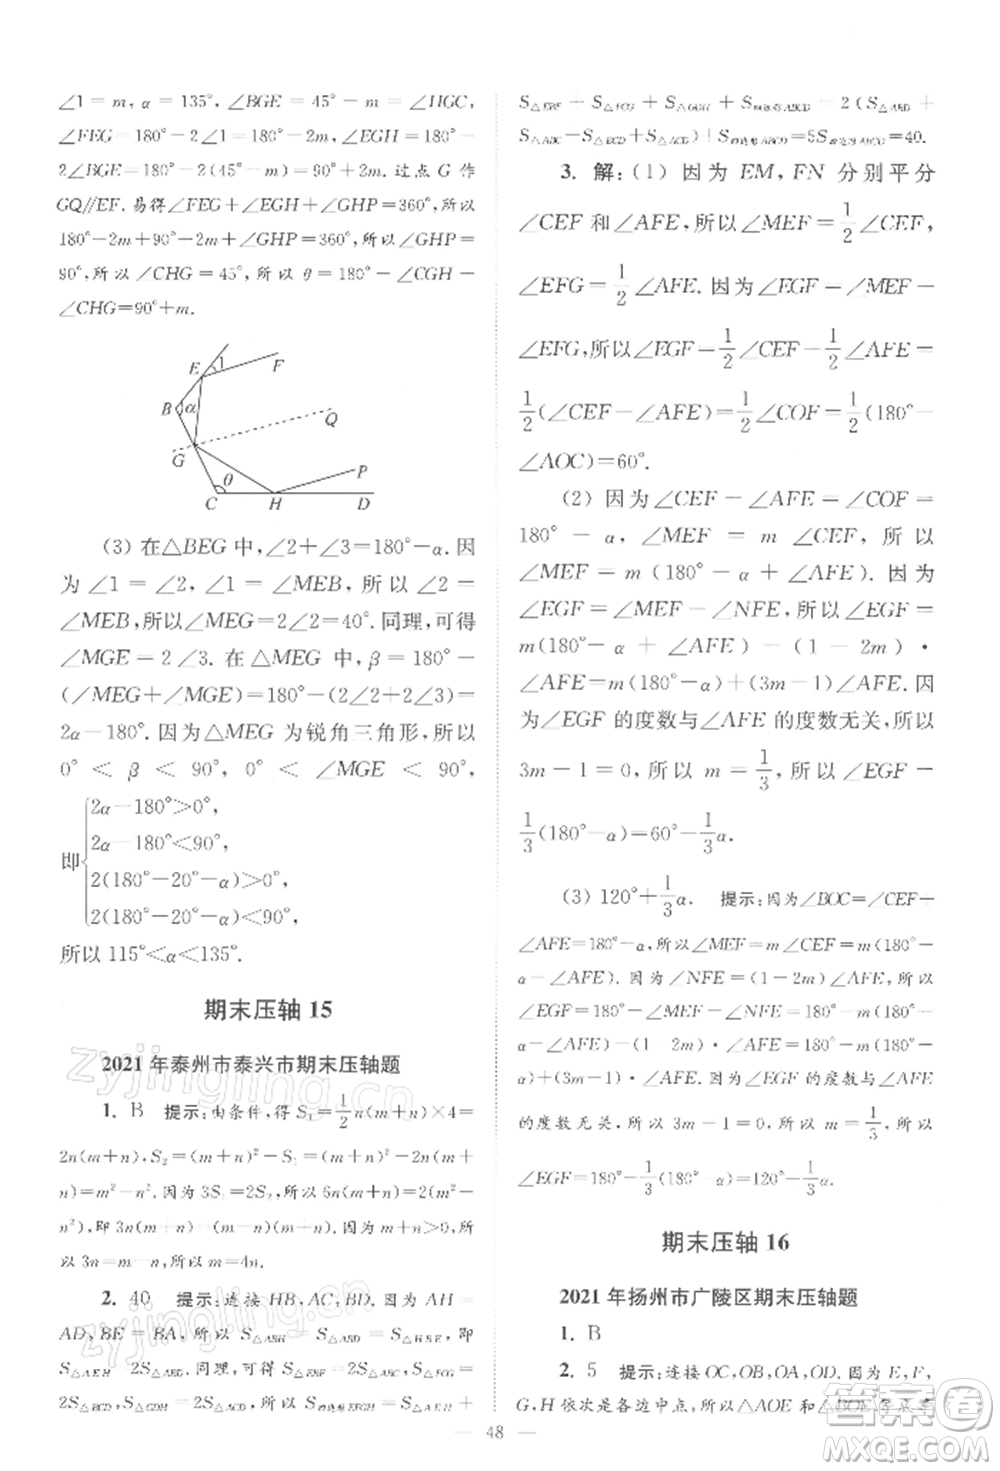 ∠1=m,α=135°,∠BGE=45°-m=∠HGC,
∠FEG=180°-2∠1=180°-2m,∠EGH=180°-
2∠BGE=180°-2(45°-m)=90°+2m.过点G作
GQ//EF.易得∠FEG+∠EGH+∠GHP=360°,所以
180°-2m+90°+2m+∠GHP=360°,所以∠GHP=
90°,所以∠CHG=45°,所以θ=180°-∠CGH-
∠CHG=90°+m.
E 1 F
B α
Q
G
θ P
C H D
(3) 在△BEG中,∠2+∠3=180°-α.因
为∠1=∠2,∠1=∠MEB,所以∠2=
∠MEB,所以∠MEG=2∠2=40°.同理,可得
∠MGE=2∠3.在△MEG中,β=180°-
(∠MEG+∠MGE)=180°-(2∠2+2∠3)=
2α-180°.因为△MEG为锐角三角形,所以
0°<β<90°,0°<∠MGE<90°,
2α-180°>0°,
2α-180°<90°,
即
2(180°-20°-α)>0°,
2(180°-20°-α)<90°,
所以115°<α<135°.
期末压轴15
2021年泰州市泰兴市期末压轴题
1. B 提示:由条件,得S₁=1/2n(m+n)×4=
2n(m+n),S₂=(m+n)²-S₁=(m+n)²-
2n(m+n)=m²-n².因为3S₁=2S₂,所以6n(m+n)=2(m²-
n²),即3n(m+n)=(m-n)(m+n).因为m+n>0,所
以3n=m-n,所以m=4n.
2. 40 提示:连接HB,AC,BD.因为AH=
AD,BE=BA,所以S△ABH=S△ABD,S△ABH=S△HBE,即
S△AEH=2S△ABD.同理,可得S△EBF=2S△ABC,S△FCG=
2S△BCD,S△GDH=2S△ACD,所以S四边形EFGH=S△AEH+
S△EBF+S△FCG+S△GDH+S四边形ABCD=2(S△ABD+
S△ABC+S△BCD+S△ACD)+S四边形ABCD=5S四边形ABCD=40.
3. 解:(1) 因为EM,FN分别平分
∠CEF和∠AFE,所以∠MEF=1/2∠CEF,
∠EFG=1/2∠AFE.因为∠EGF=∠MEF-
∠EFG,所以∠EGF=1/2∠CEF-1/2∠AFE=
1/2(∠CEF-∠AFE)=1/2∠COF=1/2(180°-
∠AOC)=60°.
(2) 因为∠CEF-∠AFE=∠COF=
180°-α,∠MEF=m∠CEF,所以
∠MEF=m(180°-α+∠AFE).因为
∠EGF=∠MEF-∠NFE,所以∠EGF=
m(180°-α+∠AFE)-(1-2m)·
∠AFE=m(180°-α)+(3m-1)∠AFE.因
为∠EGF的度数与∠AFE的度数无关,所以
3m-1=0,所以m=1/3,所以∠EGF=
1/3(180°-α)=60°-1/3α.
(3) 120°+1/3α. 提示:因为∠BOC=∠CEF+
∠AFE=180°-α,所以∠MEF=m∠CEF=m(180°-
α-∠AFE).因为∠NFE=(1-2m)∠AFE,所以
∠EGF=180°-∠MEF-∠NFE=180°-m(180°-
α-∠AFE)-(1-2m)∠AFE=180°-m(180°-
α)+(3m-1)∠AFE.因为∠EGF的度数与∠AFE的
度数无关,所以3m-1=0,所以m=1/3,所以
∠EGF=180°-1/3(180°-α)=120°+1/3α.
期末压轴16
2021年扬州市广陵区期末压轴题
1. B
2. 5 提示:连接OC,OB,OA,OD.因为E,F,
G,H依次是各边中点,所以△AOE和△BOE等底等
48
zyjingling.cn
zyjingling.cn
答案圈
MXQE.COM